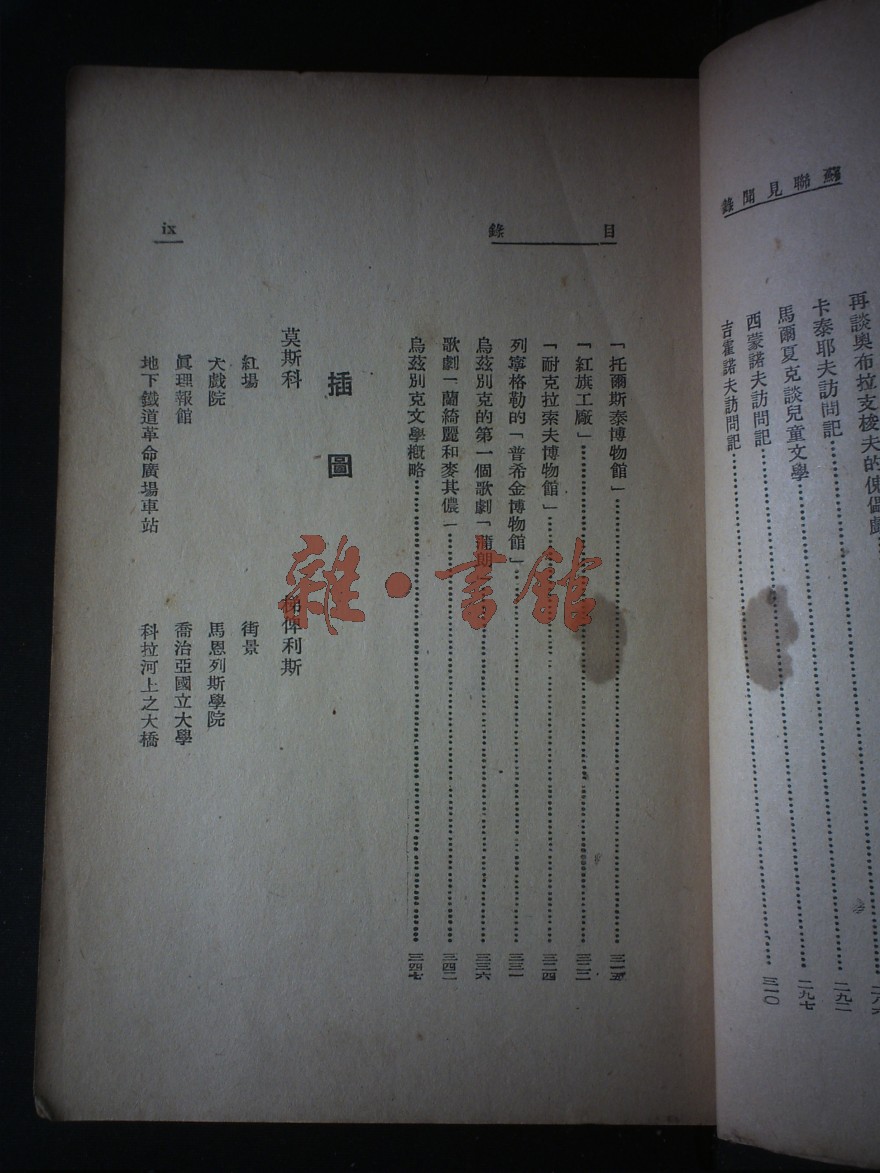 蘇聯見聞錄
再談奧布拉支梭夫的傀儡戲
卡泰耶夫訪問記
馬爾夏克談兒童文學……二九二
西蒙諾夫訪問記……二九七
吉霍諾夫訪問記……三一〇
目錄
「托爾斯泰博物館」……三一五
「紅旗工廠」……三二二
「耐克拉索夫博物館」……三二四
列寧格勒的「普希金博物館」……三三一
烏茲別克的第一個歌劇「蒲朗……三三六
歌劇「蘭綺麗和麥其儂」……三四二
烏茲別克文學概略……三四七
插圖
莫斯科
紅場
大戲院
眞理報館
地下鐵道革命廣場車站
梯俾利斯
街景
馬恩列斯學院
喬治亞國立大學
科拉河上之大橋
ix
雜·書館